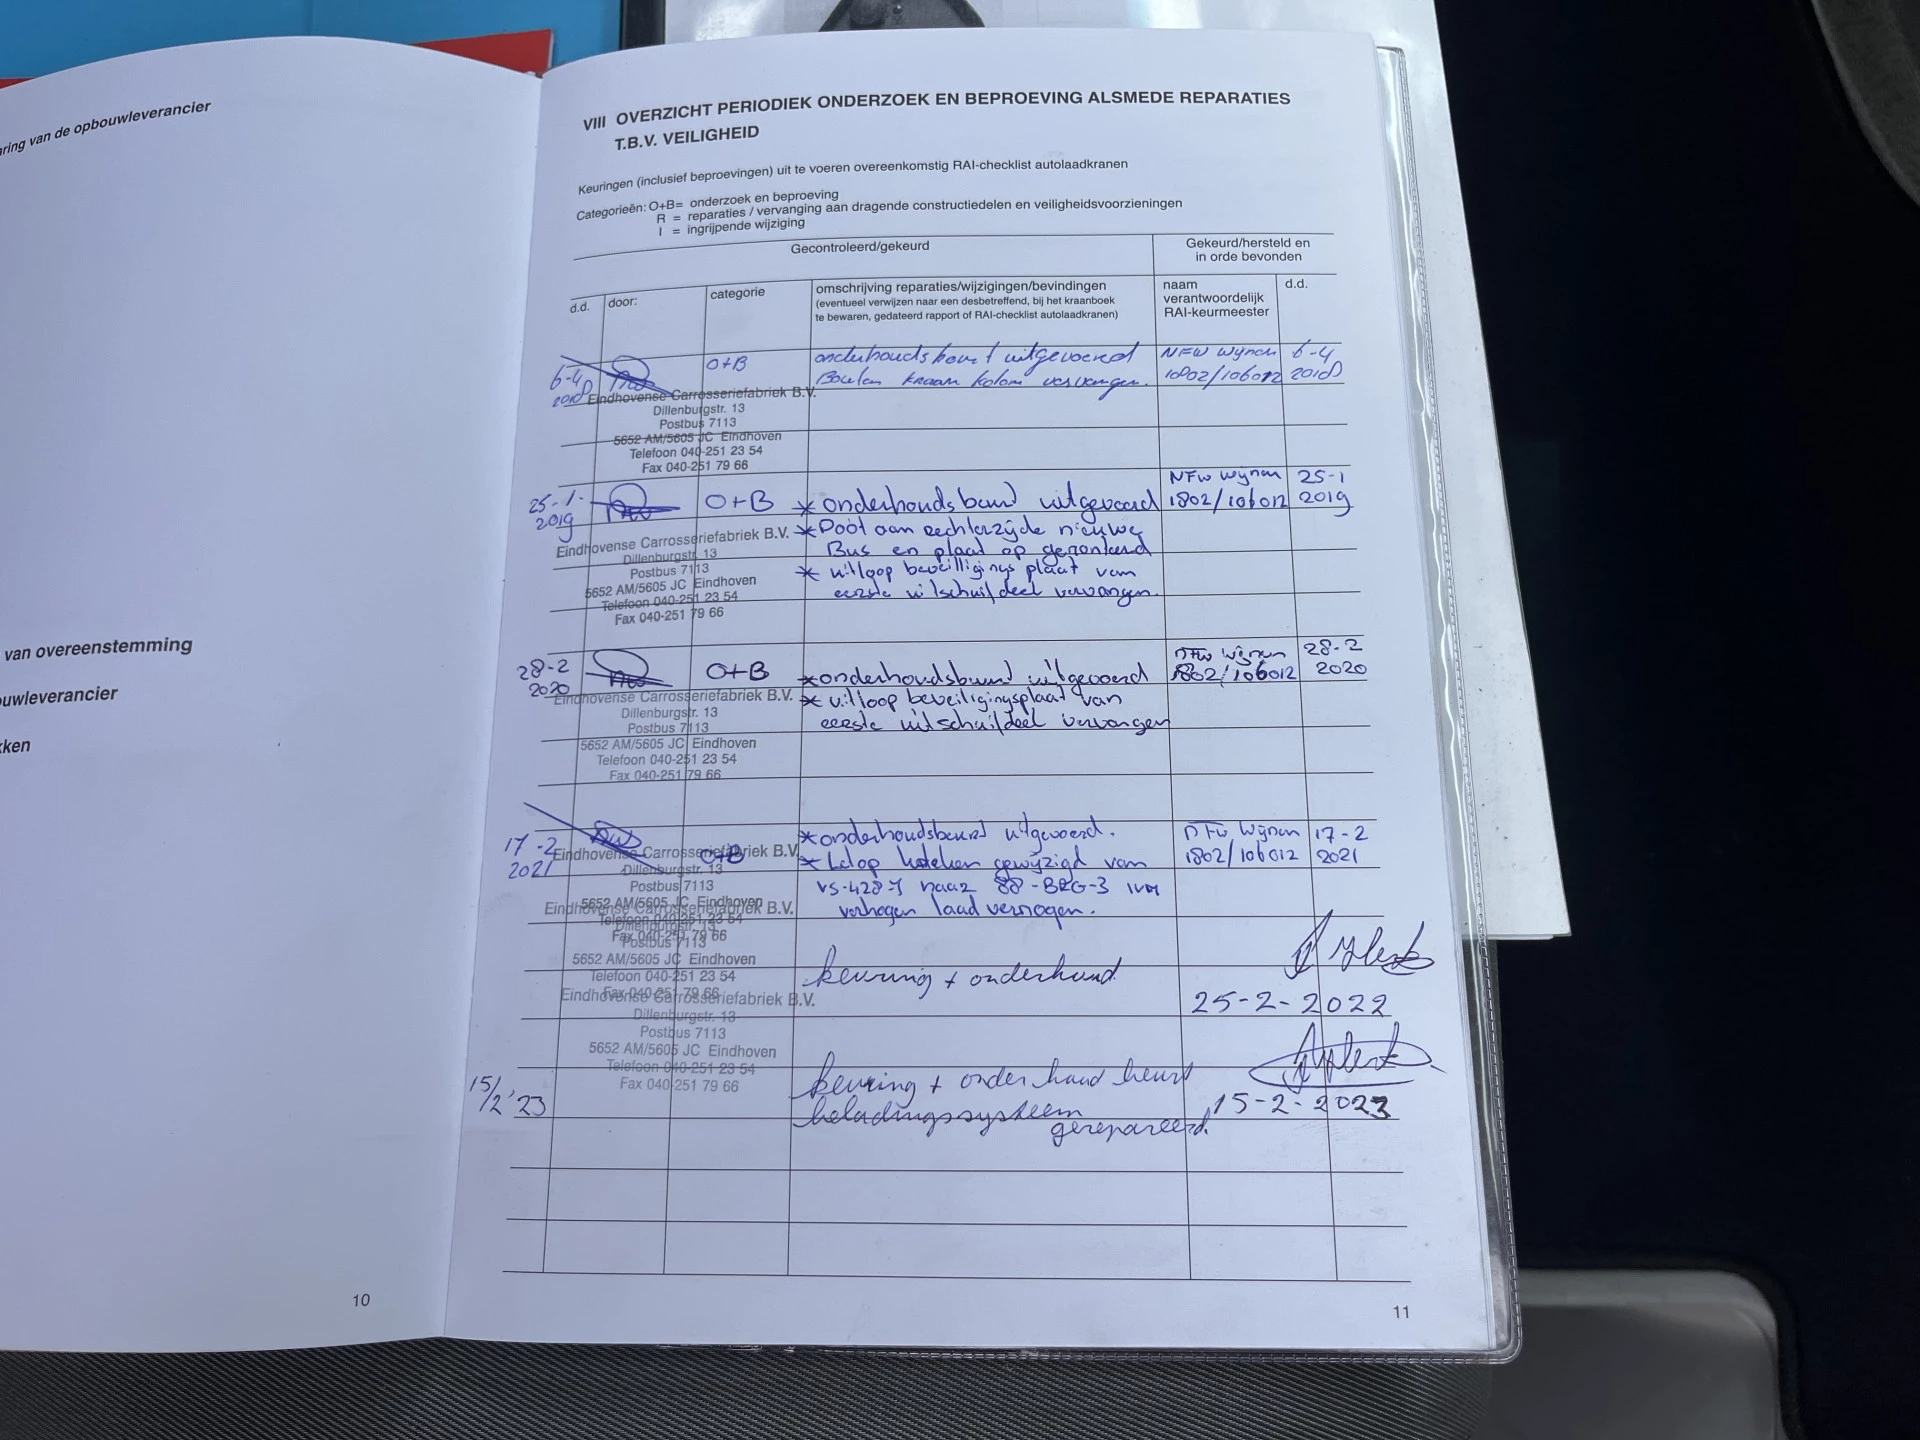 ring van de opbouwleverancier
van overeenstemming
uwleverancier
kken
10
VIII OVERZICHT PERIODIEK ONDERZOEK EN BEPROEVING ALSMEDE REPARATIES
T.B.V. VEILIGHEID
Keuringen (inclusief beproevingen) uit te voeren overeenkomstig RAI-checklist autolaadkranen
Categorieën: O+B= onderzoek en beproeving
R = reparaties / vervanging aan dragende constructiedelen en veiligheidsvoorzieningen
I = ingrijpende wijziging
Gecontroleerd/gekeurd
Gekeurd/hersteld en
in orde bevonden
d.d.
door:
categorie
omschrijving reparaties/wijzigingen/bevindingen
(eventueel verwijzen naar een desbetreffend, bij het kraanboek
te bewaren, gedateerd rapport of RAI-checklist autolaadkranen)
naam
verantwoordelijk
RAI-keurmeester
d.d.
6-4 O+B onderhoudsbeurt uitgevoerd NFW Wijnen 6-4
2018 Bouten kraan kolom vervangen. 1802/106012 2018
Eindhovense Carrosseriefabriek B.V.
Dillenburgstr. 13
Postbus 7113
5652 AM/5605 JC Eindhoven
Telefoon 040-251 23 54
Fax 040-251 79 66
NFW Wijnen 25-1
25-1- O+B * onderhoudsbeurt uitgevoerd 1802/106012 2019
2019 * Poot aan rechterzijde nieuwe
Bus en plaat op gemonteerd
* uitloop beveilligings plaat van
eerste uitschuifdeel vervangen.
Eindhovense Carrosseriefabriek B.V.
Dillenburgstr. 13
Postbus 7113
5652 AM/5605 JC Eindhoven
Telefoon 040-251 23 54
Fax 040-251 79 66
NFW Wijnen 28-2
28-2 O+B * onderhoudsbeurt uitgevoerd 1802/106012 2020
2020 * uitloop beveiligingsplaat van
eerste uitschuifdeel vervangen
Eindhovense Carrosseriefabriek B.V.
Dillenburgstr. 13
Postbus 7113
5652 AM/5605 JC Eindhoven
Telefoon 040-251 23 54
Fax 040-251 79 66
17-2 * onderhoudsbeurt uitgevoerd. NFW Wijnen 17-2
2021 O+B * kenteken gewijzigd van 1802/106012 2021
naar 88-BRG-3 ivm
verhogen laad vermogen.
Eindhovense Carrosseriefabriek B.V.
Dillenburgstr. 13
Postbus 7113
5652 AM/5605 JC Eindhoven
Telefoon 040-251 23 54
Fax 040-251 79 66
Eindhovense Carrosseriefabriek B.V.
Dillenburgstr. 13
Postbus 7113
5652 AM/5605 JC Eindhoven
Telefoon 040-251 23 54
Fax 040-251 79 66
keuring + onderhoud
25-2-2022
Eindhovense Carrosseriefabriek B.V.
Dillenburgstr. 13
Postbus 7113
5652 AM/5605 JC Eindhoven
Telefoon 040-251 23 54
Fax 040-251 79 66
15/2 '23 keuring + onderhoud beurt
beladingssysteem 15-2-2023
gerepareerd.
11